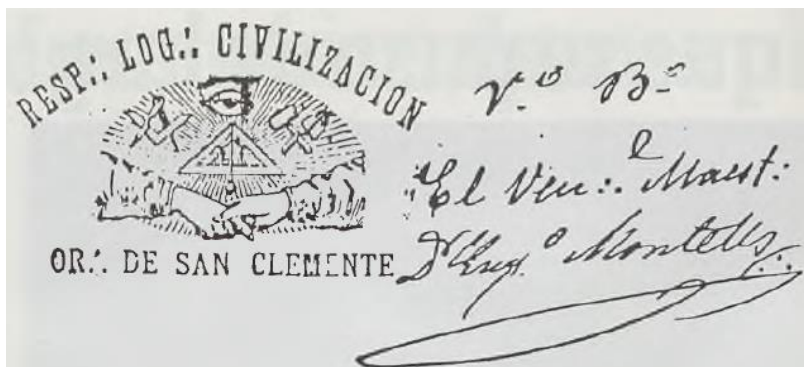 RESP.·. LOG.·. CIVILIZACION
OR.·. DE SAN CLEMENTE
V.º B.º
El Ven.·.l Maest.·.
Montells